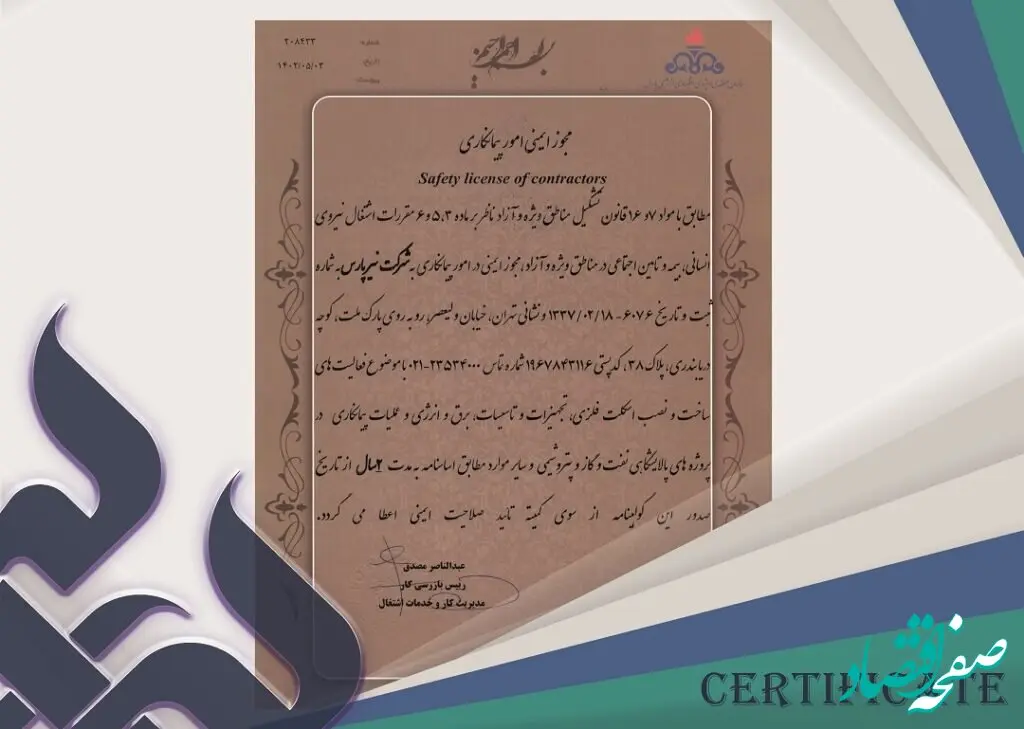 ۲۰۸۴۳۳
شماره:
۱۴۰۲/۰۵/۰۳
تاریخ:
پیوست:
مجوز ایمنی امور پیمانکاری
Safety license of contractors
مطابق با مواد ۷ و ۱۶ قانون تشکیل مناطق ویژه و آزاد ناظر بر ماده ۵،۳ و ۶ مقررات اشتغال نیروی
انسانی، بیمه و تامین اجتماعی در مناطق ویژه و آزاد، مجوز ایمنی در امور پیمانکاری به شرکت نیرپارس به شماره
ثبت و تاریخ ۶۰۷۶ - ۱۳۳۷/۰۲/۱۸ و نشانی تهران، خیابان ولیعصر، رو به روی پارک ملت، کوچه
دریابندری، پلاک ۳۸، کدپستی ۱۹۶۷۸۴۳۱۱۶ شماره تماس ۰۲۱-۲۳۵۳۴۰۰۰ با موضوع فعالیت های
ساخت و نصب اسکلت فلزی، تجهیزات و تاسیسات، برق و انرژی و عملیات پیمانکاری در
پروژه های پالایشگاهی نفت و گاز و پتروشیمی و سایر موارد مطابق اساسنامه به مدت ۲سال از تاریخ
صدور این گواهینامه از سوی کمیته تائید صلاحیت ایمنی اعطا می گردد.
عبدالناصر مصدق
رییس بازرسی کار
مدیریت کار و خدمات اشتغال
صفحه اقتصاد
CERTIFICATE